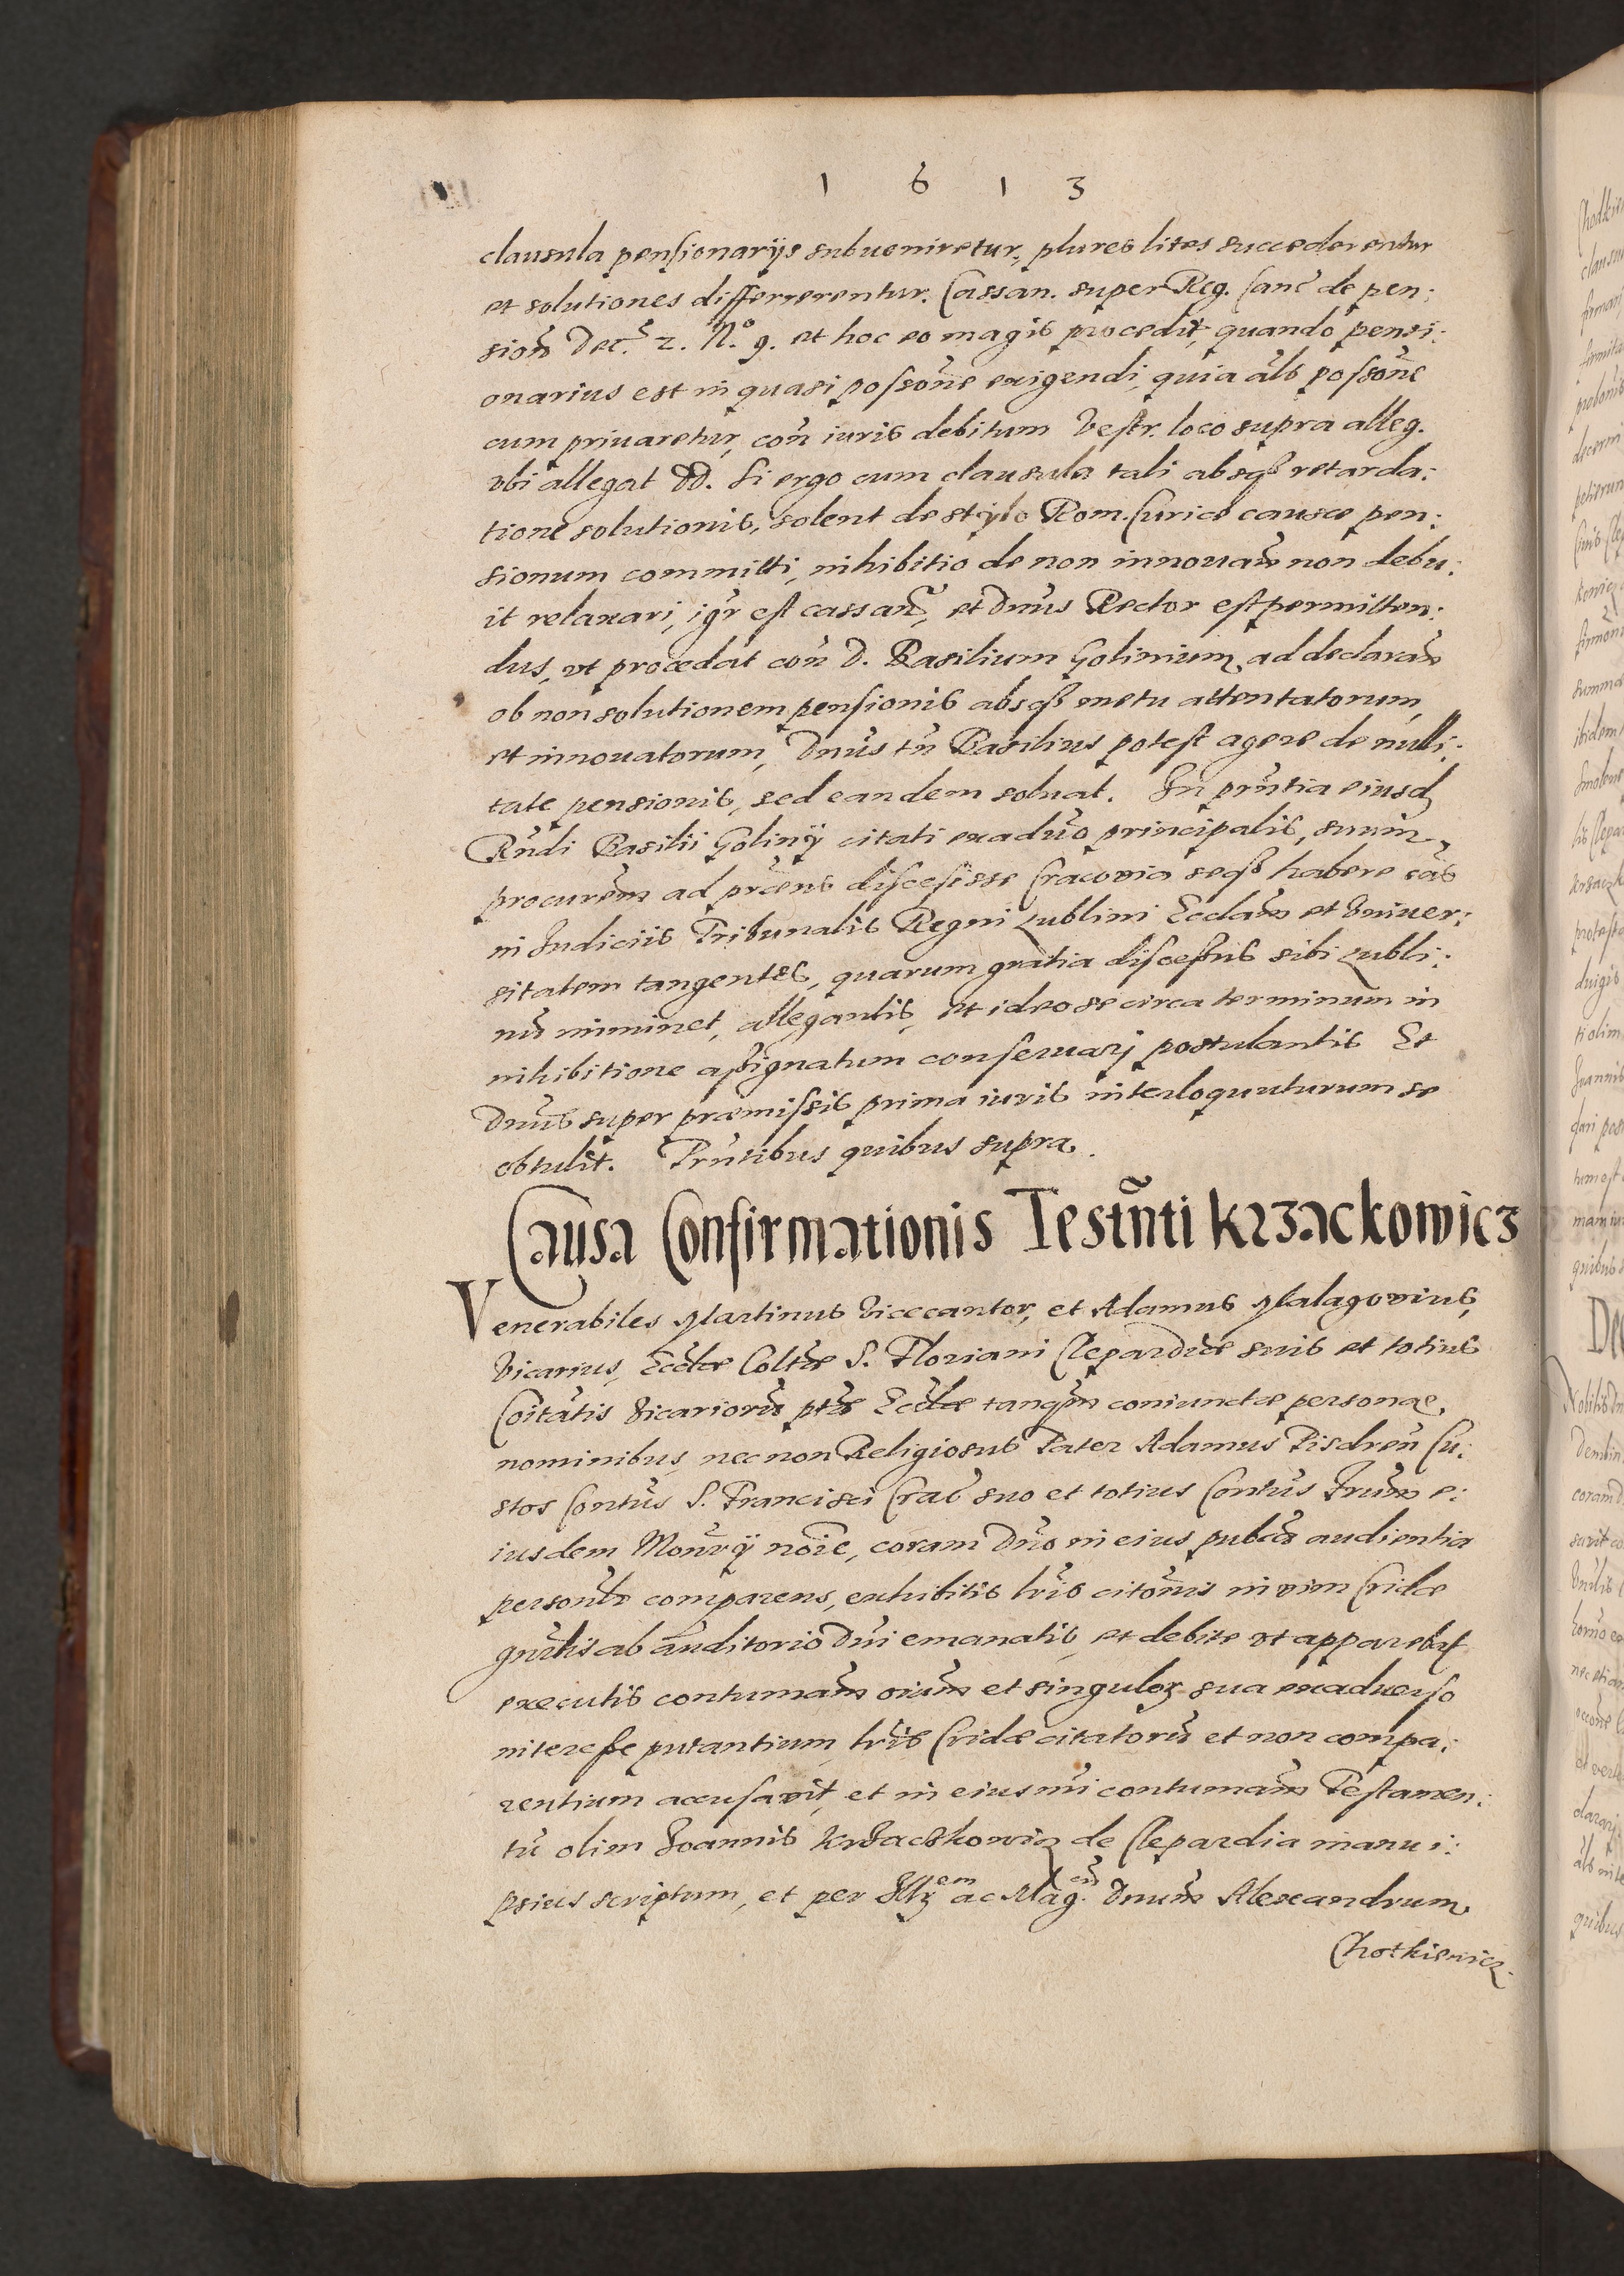 1 6 1 3
clausula pensionarijs subueniretur, plures lites succederentur
et solutiones differrerentur. Cassan. super Reg. Canc̃ de pen:
sioñ Dec̃. 2. N.º 9. et hoc eo magis procedit, quando pensi:
onarius est in quasi possoñe exigendi, quia als̃ possoñe
cum priuaretur, coñ iuris debitum Vestr. loco supra alleg.
vbi allegat DD. Si ergo cum clausula tali absq₃ retarda:
tione solutionis, solent de stylo Rom. Curiæ causæ pen:
sionum committi, inhibitio de non innouañ non debu:
it relaxari, igr̃ est cassañ, et Dnũs Rector est permitten:
dus, vt procedat coñ D. Basilium Golinium ad declarañ
ob non solutionem pensionis absq₃ metu attentatorum,
et innouatorum, Dnũs tñ Basilius potest agere de nulli:
tate pensionis, sed eandem soluat. In prñtia eiusd
Rñdi Basilii Golinij citati exaduẽo principalis, suum
procurem̃ ad prãens discesisse Cracovia seq₃ habere cãs
in Iudiciis Tribunalis Regni Lublini Ecclam̃ et Vniuer:
sitatem tangentes, quarum gratia discessus sibi Lubli:
nũ imminet, allegantis, et ideo se circa terminum in
inhibitione assignatum conseruarj postulantis Et
Dnũs super præmissis prima iuris interloquuturum se
obtulit. Prñtibus quibus supra.
Causa Confirmationis Testm̃ti Krzackowicz
Venerabiles Martinus Vicecantor, et Adamus Malagovius,
Vicarius, Ecclæ̃ Coltæ̃ S. Floriani Clepardiæ suis et totius
Coitãtis Vicariorũ ptæ̃ Ecclæ̃ tanqm̃ coniunctæ personæ,
nominibus, nec non Religiosus Pater Adamus Pisdreñ Cu:
stos Contũs S. Francisci Crac̃ suo et totius Contũs Frũm e:
iusdem Monrỹ noĩe, coram Dnõ in eius pubcã audientia
personlr̃ comparens, exhibitis lrĩs citoñis in vim Cridæ
gnrl̃is ab auditorio Dnĩ emanatis, et debite vt apparebat
executis contumam̃ oium̃ et singuloꝝ sua exaduerso
interesse putantium, lrĩs Cridæ citatorũ et non compa:
rentium accusavit, et in eiusmĩ contumam̃ Testamen:
tũ olim Joannis Krzaczkowicz de Clepardia manu i:
psius scriptum, et per Illꝫ.em ac Mag.cũ Dnum̃ Alexandrum
Chotkiewicz.